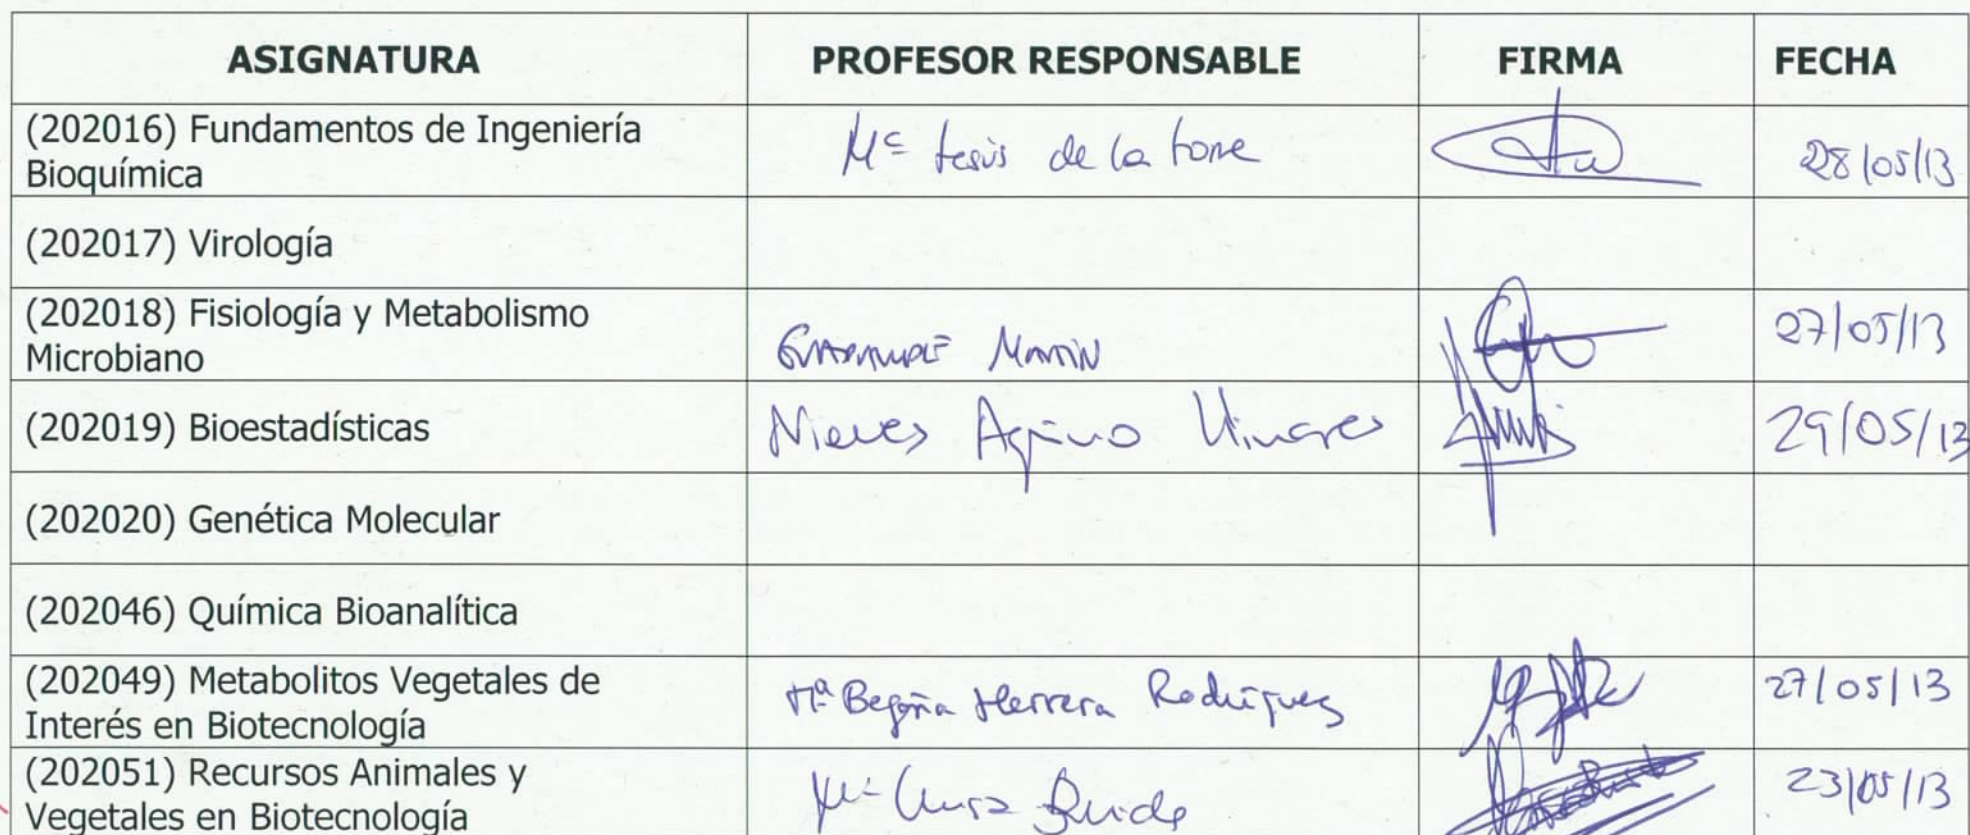 ASIGNATURA PROFESOR RESPONSABLE FIRMA FECHA
(202016) Fundamentos de Ingeniería
Bioquímica
Mª Jesús de la Torre 28/05/13
(202017) Virología
(202018) Fisiología y Metabolismo
Microbiano
Martín 27/05/13
(202019) Bioestadísticas Nieves Aquino Llinares 29/05/13
(202020) Genética Molecular
(202046) Química Bioanalítica
(202049) Metabolitos Vegetales de
Interés en Biotecnología
Mª Begoña Herrera Rodríguez 27/05/13
(202051) Recursos Animales y
Vegetales en Biotecnología
Mª Luisa 23/05/13